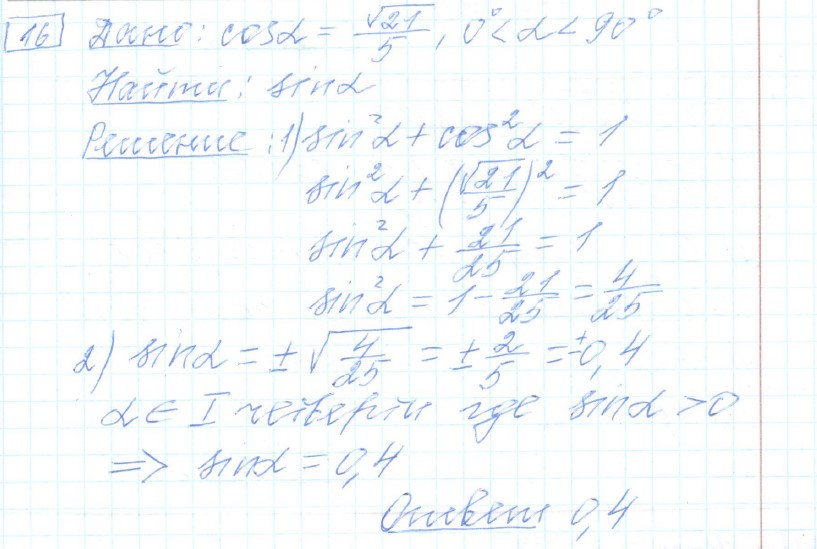 16 Дано: cosα = √21/5, 0°<α<90°
Найти: sinα
Решение: 1) sin²α + cos²α = 1
sin²α + (√21/5)² = 1
sin²α + 21/25 = 1
sin²α = 1 - 21/25 = 4/25
2) sinα = ±√4/25 = ±2/5 = ±0,4
α ∈ I четверти где sinα >0
=> sinα = 0,4
Ответ 0,4